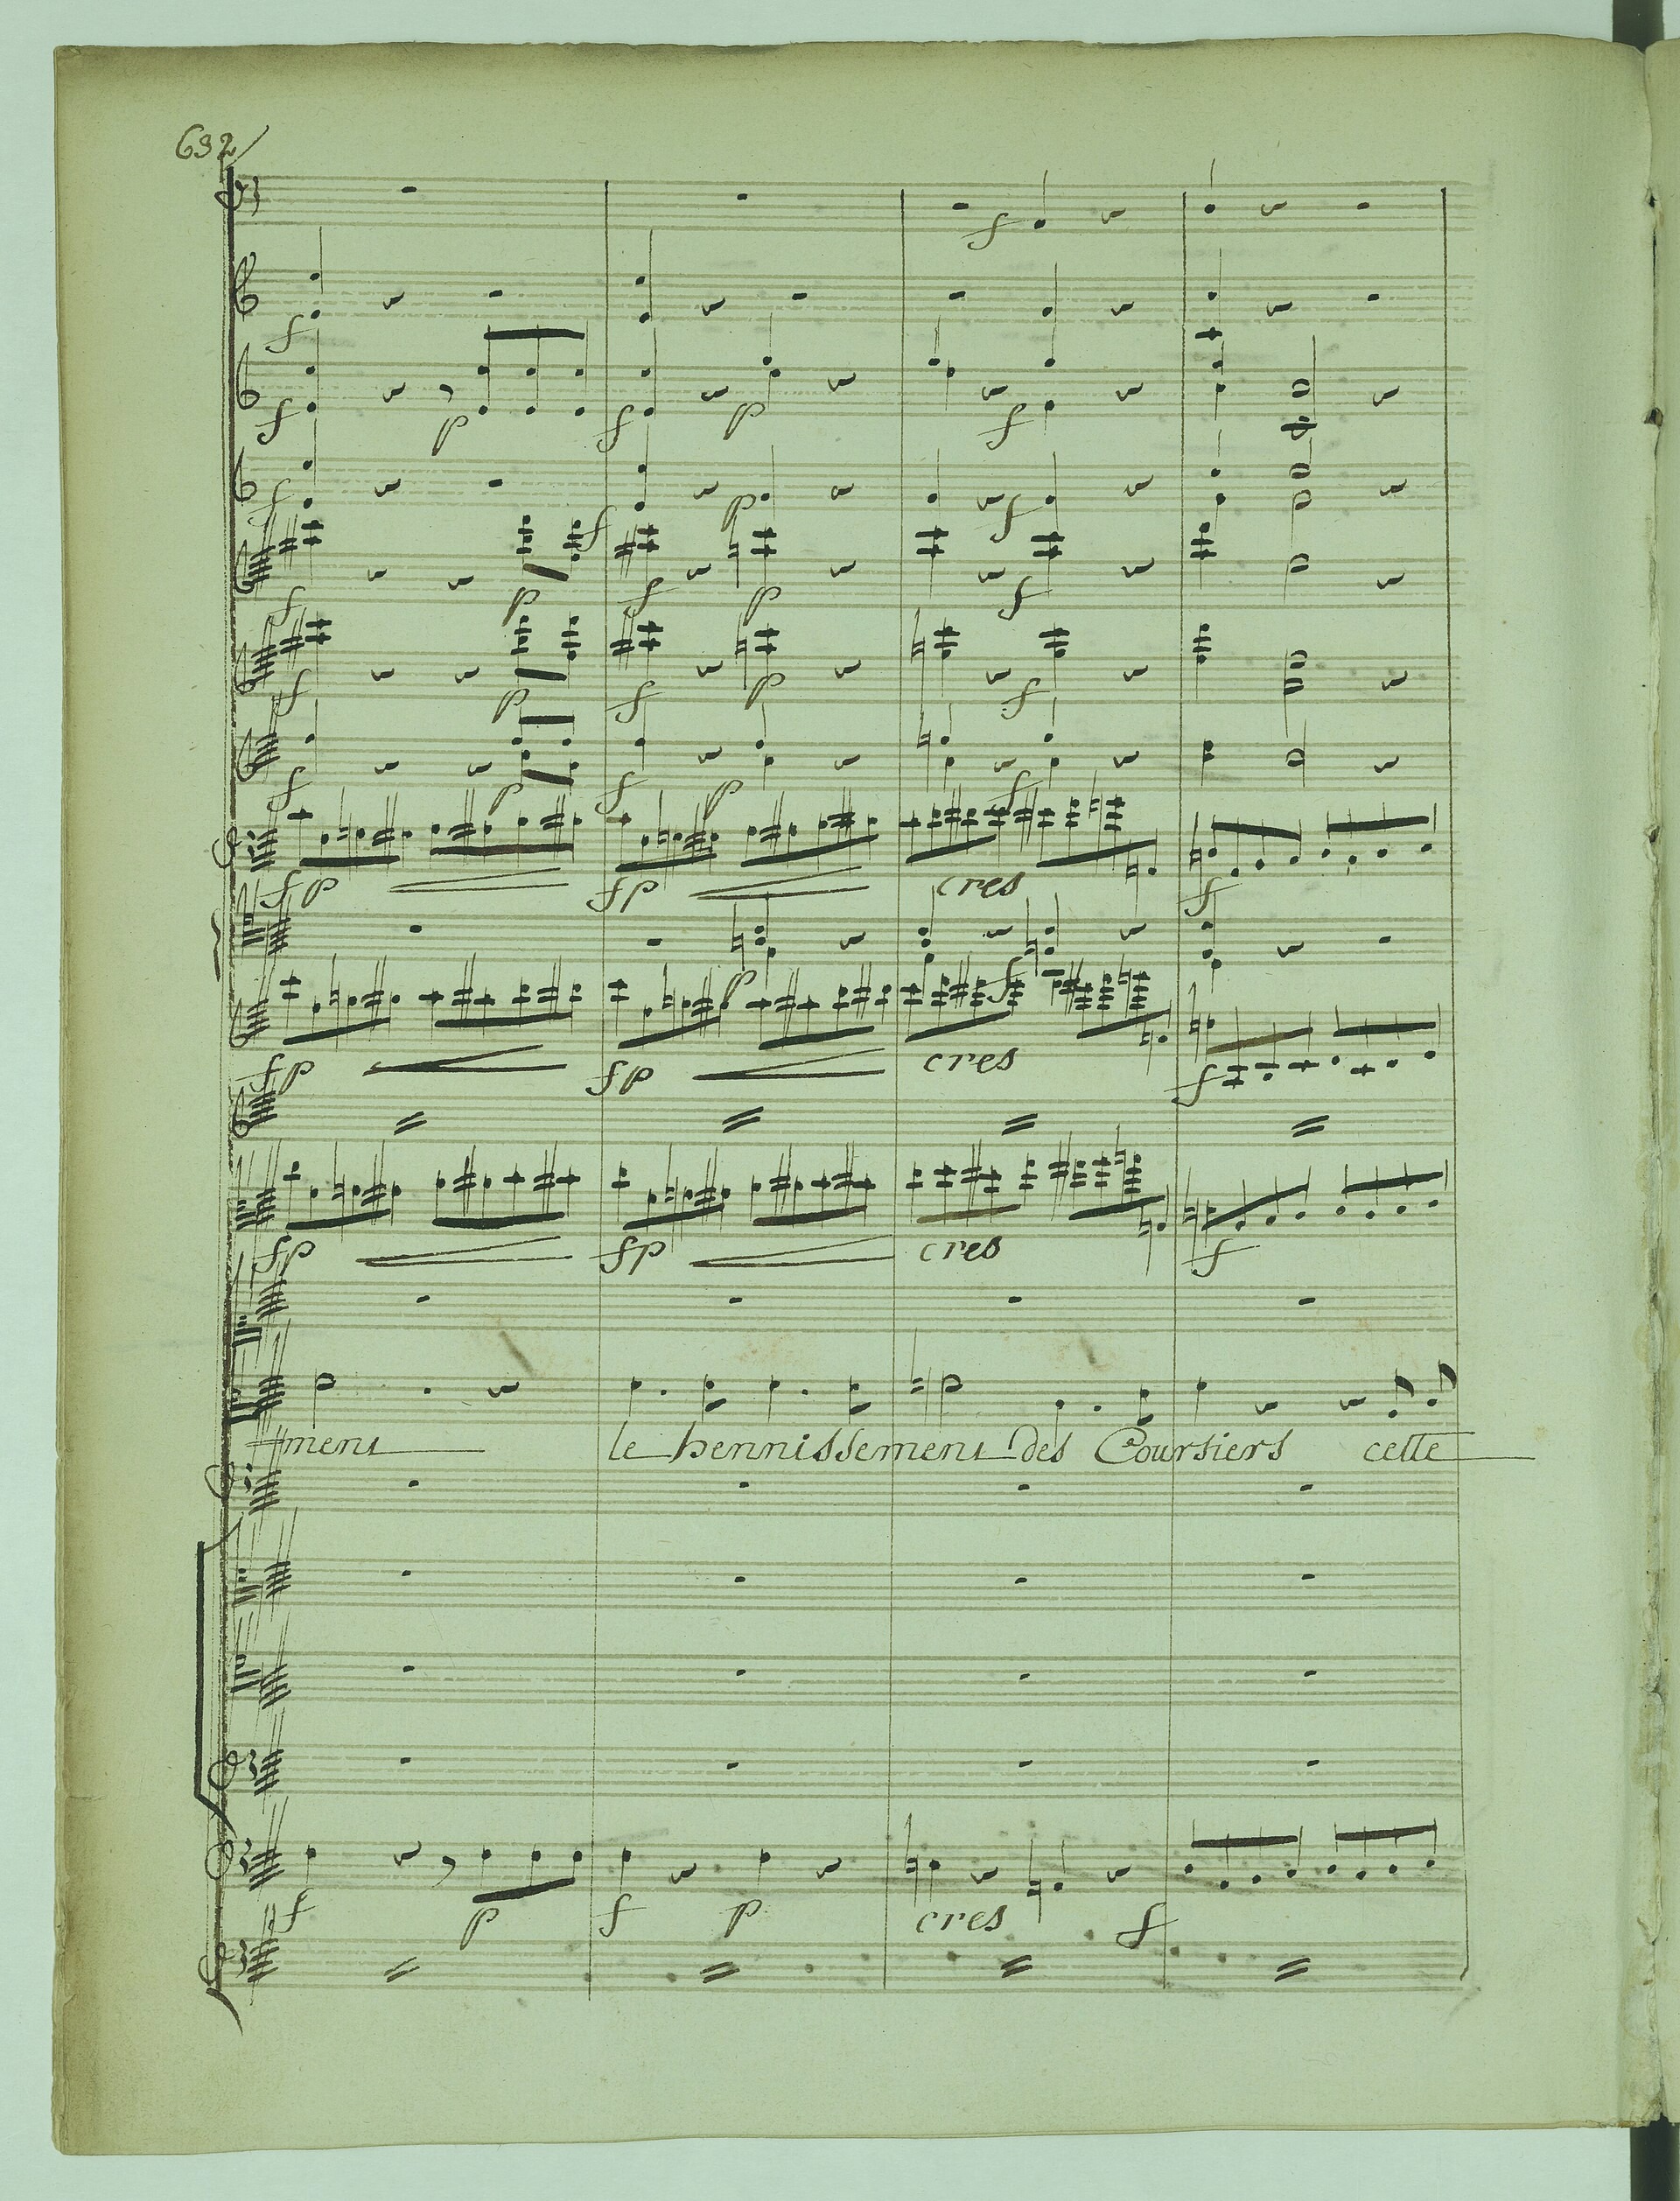 692
f
f
f
p
f
p
f
f
p
f
f
f
p
f
p
f
f
p
f
p
f
f
p
f
p
f
fp
fp
cres
f
p
f
fp
fp
cres
f
fp
fp
cres
f
ment le hennissement des Coursiers cette
f
p
f
p
cres
f